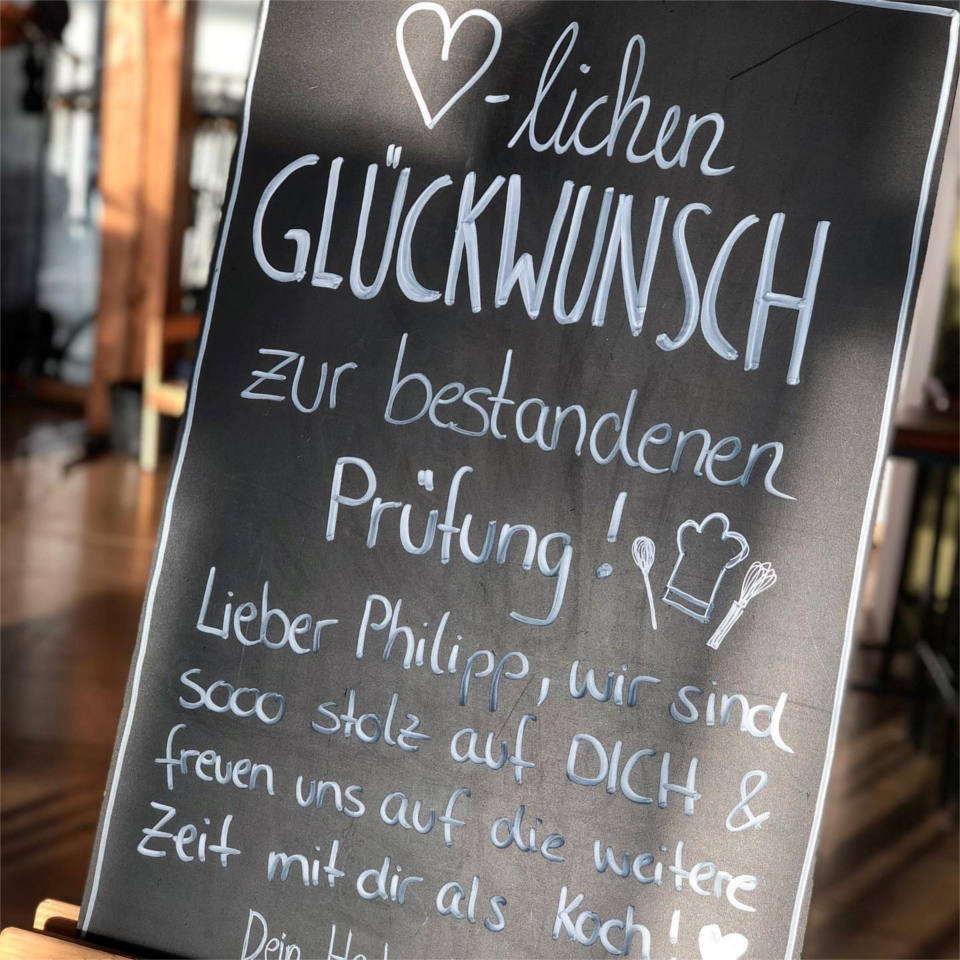 ♡-lichen
GLÜCKWUNSCH
zur bestandenen
Prüfung!
Lieber Philipp, wir sind
sooo stolz auf DICH &
freuen uns auf die weitere
Zeit mit dir als Koch! ♥
Dein